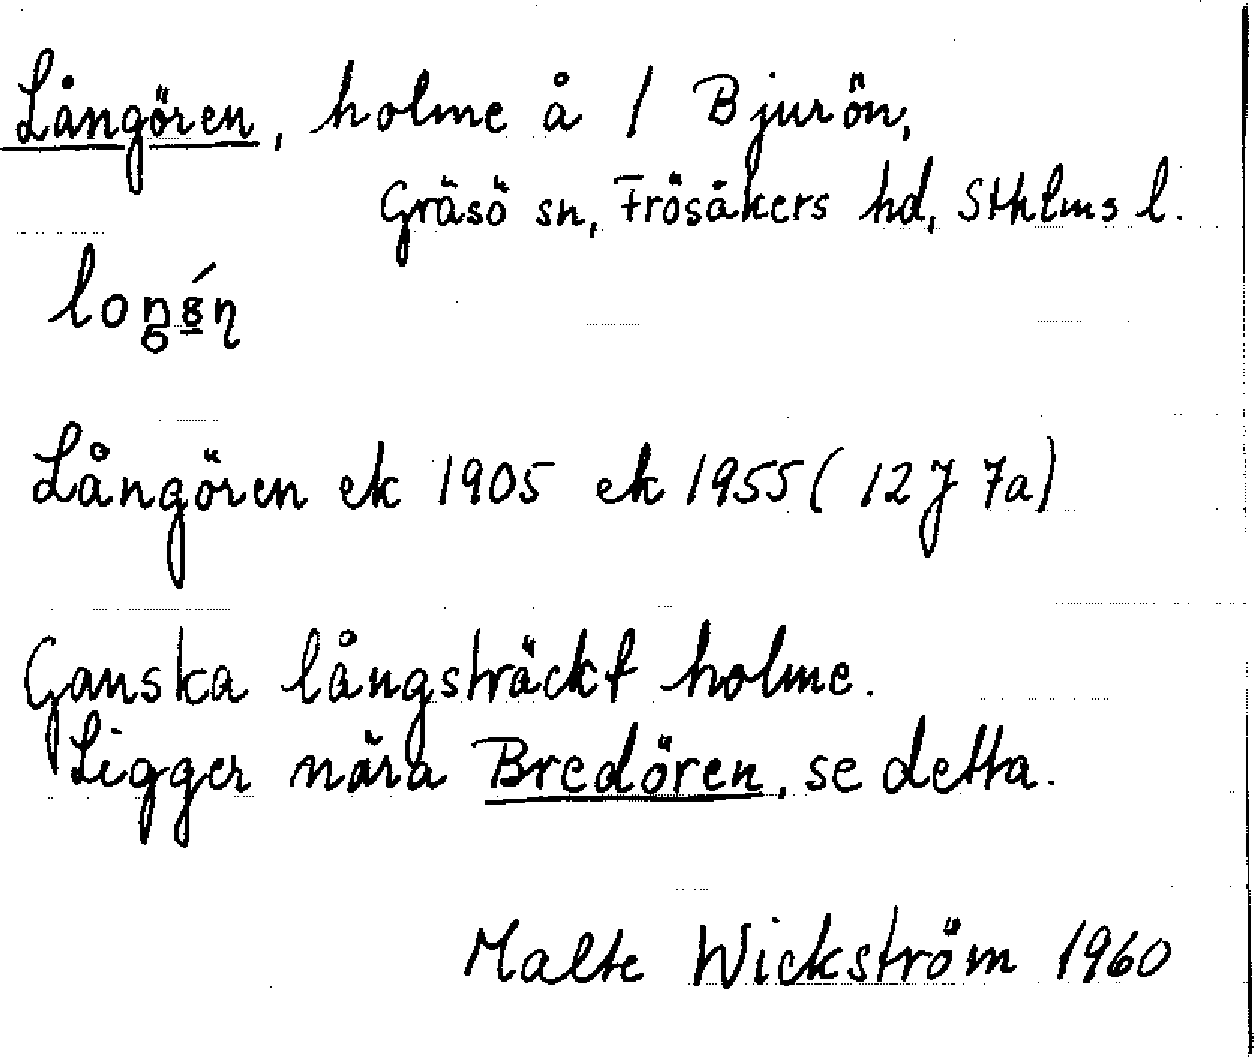 Långören, holme å 1 Bjurön,
Gräsö sn, Frösåkers hd, Sthlms l.
Långören ek 1905 ek 1955 (12J 7a)
Ganska långsträckt holme.
Ligger nära Bredören, se detta.
Malte Wickström 1960